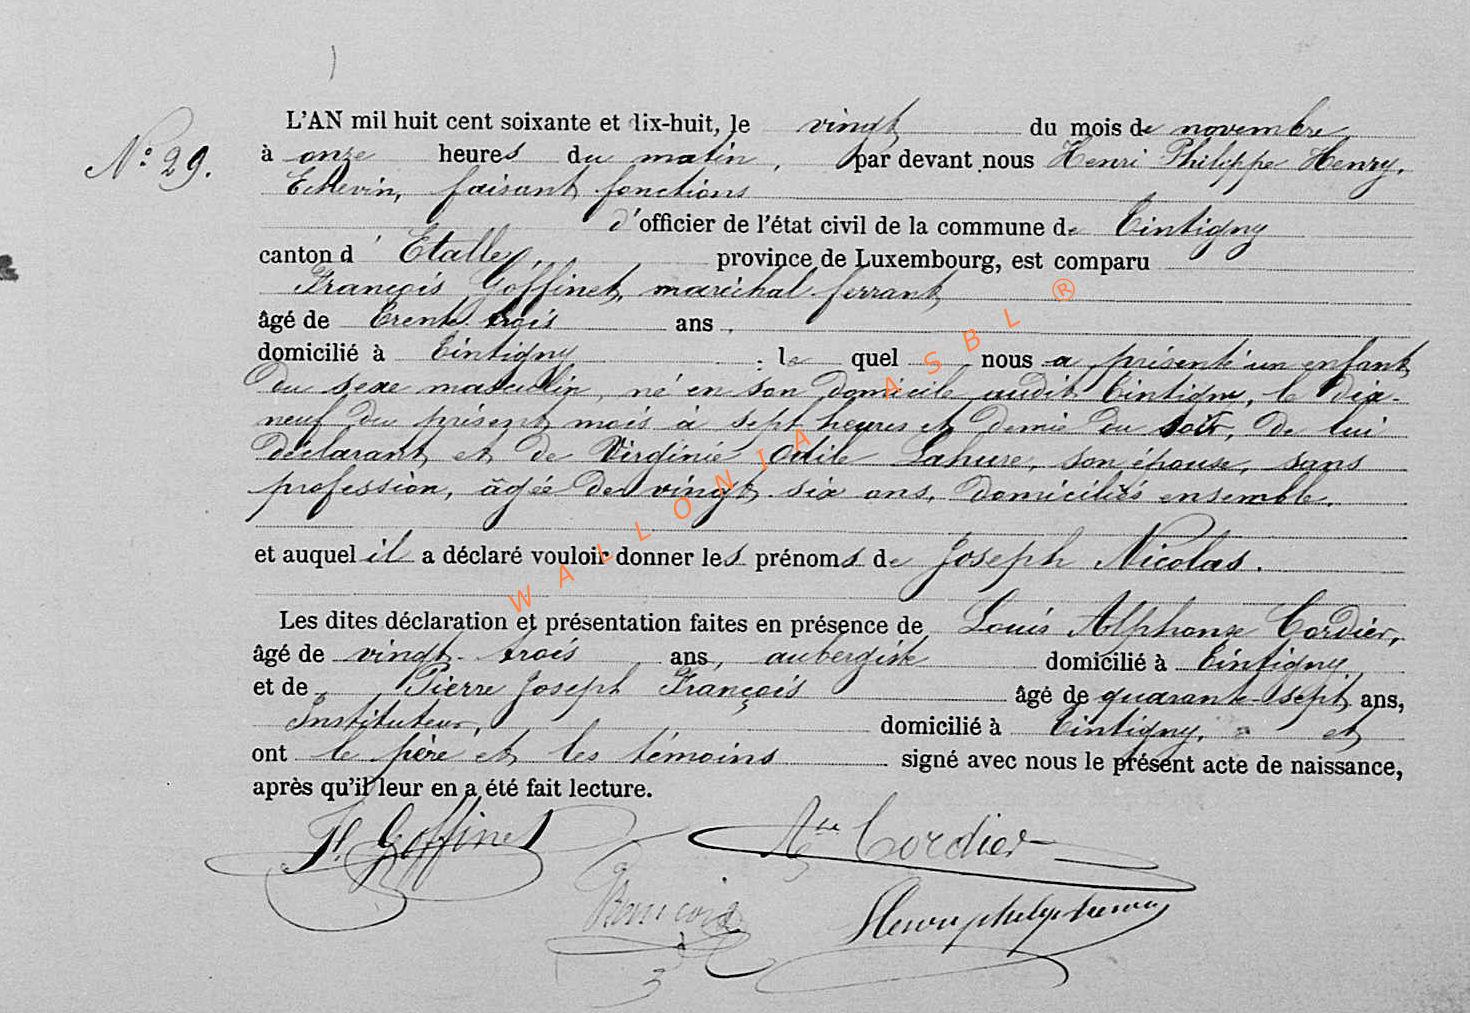 L'AN mil huit cent soixante et dix-huit, le vingt du mois de novembre
N° 29.
à onze heures du matin, par devant nous Henri Philippe Henry,
Echevin, faisant fonctions
d'officier de l'état civil de la commune de Tintigny
canton d'Etalle, province de Luxembourg, est comparu
François Goffinet, maréchal ferrant
âgé de trente trois ans,
domicilié à Tintigny ; lequel nous a présenté un enfant
du sexe masculin, né en son domicile audit Tintigny, le dix-
neuf du présent mois à sept heures et demie du soir, de lui
déclarant et de Virginie Odile Lahure, son épouse, sans
profession, âgée de vingt six ans, domiciliés ensemble.
et auquel il a déclaré vouloir donner les prénoms de Joseph Nicolas.
Les dites déclaration et présentation faites en présence de Louis Alphonse Cordier,
âgé de vingt-trois ans, aubergiste domicilié à Tintigny
et de Pierre Joseph François âgé de quarante-sept ans,
Instituteur, domicilié à Tintigny, et
ont le père et les témoins signé avec nous le présent acte de naissance,
après qu'il leur en a été fait lecture.
Goffinet Cordier
François Henri philippe henry
WALLONIA ASBL ®